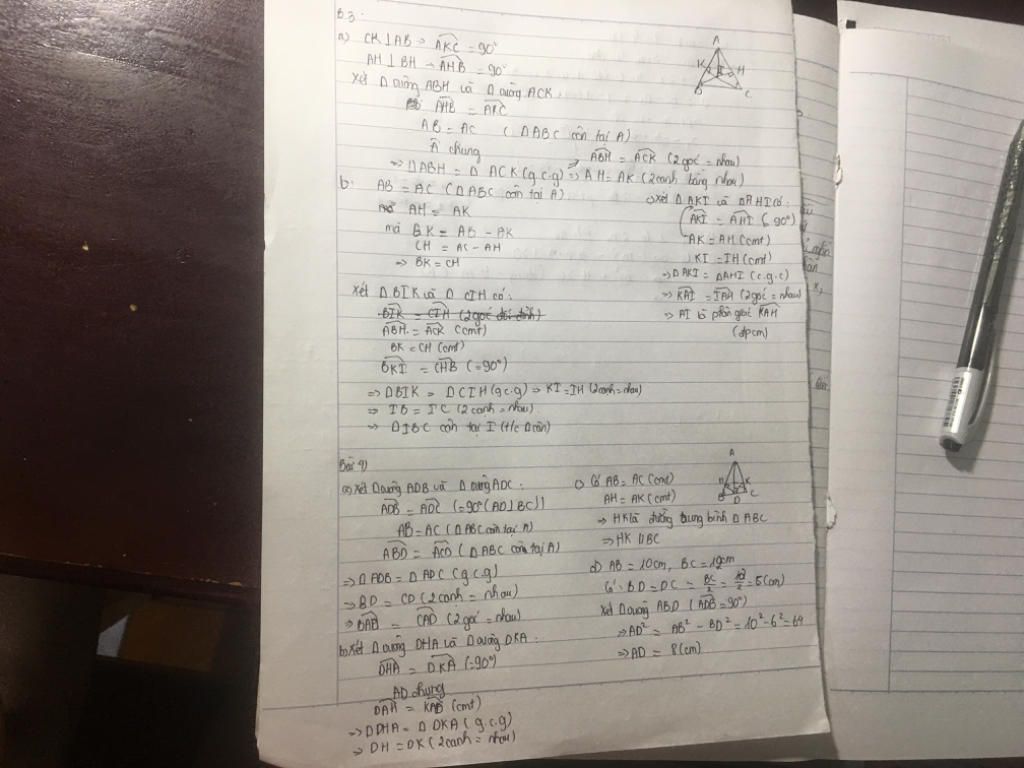 B3:
a) CK⊥AB → AKC = 90°
AH⊥BH → AHB = 90°
Xét Δ vuông ABH và Δ vuông ACK
AHB = AKC
AB = AC (ΔABC cân tại A)
 chung
⇒ ΔABH = ΔACK (g.c.g) ⇒ AH = AK (2 cạnh bằng nhau)
⇒ ABH = ACK (2 góc = nhau)
b. AB = AC (ΔABC cân tại A)
AH = AK
mà BK = AB - AK
CH = AC - AH
⇒ BK = CH
Xét ΔBIK và ΔCIH có:
BIK = CIH (2 góc đối đỉnh)
ABH = ACK (cmt)
BK = CH (cmt)
BKI = CHB (=90°)
⇒ ΔBIK = ΔCIH (g.c.g) ⇒ KI = IH (2 cạnh = nhau)
⇒ IB = IC (2 cạnh = nhau)
⇒ ΔIBC cân tại I (t/c Δ cân)
c) Xét ΔAKI và ΔAHI có:
AKI = AHI (= 90°)
AK = AH (cmt)
KI = IH (cmt)
⇒ ΔAKI = ΔAHI (c.g.c)
⇒ KAI = IAH (2 góc = nhau)
⇒ AI là phân giác KAH
(đpcm)
A
K
H
B
C
Bài 4)
a) Xét Δ vuông ADB và Δ vuông ADC:
ADB = ADC (=90° (AD⊥BC))
AB = AC (ΔABC cân tại A)
ABD = ACD (ΔABC cân tại A)
⇒ ΔADB = ΔADC (g.c.g)
⇒ BD = CD (2 cạnh = nhau)
⇒ BAD = CAD (2 góc = nhau)
b) Xét Δ vuông DHA và Δ vuông DKA:
DHA = DKA (=90°)
AD chung
DAH = KAD (cmt)
⇒ ΔDHA = ΔDKA (g.c.g)
⇒ DH = DK (2 cạnh = nhau)
c) Có AB = AC (cmt)
AH = AK (cmt)
⇒ HK là đường trung bình ΔABC
⇒ HK // BC
d) AB = 10cm, BC = 12cm
Có: BD = DC = BC/2 = 12/2 = 6 (cm)
Xét Δ vuông ABD (ADB = 90°)
⇒ AD² = AB² - BD² = 10² - 6² = 64
⇒ AD = 8 (cm)
A
H
K
B
D
C